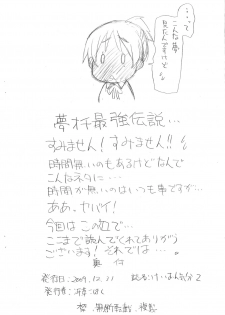 こんな夢
見たんですけど
夢オチ最強伝説…
すみません!すみません!!
時間無いのもあるけどなんで
こんなネタに…
時間が無いのはいつも事ですが…
ああ、ヤバイ!
今回はこの辺で…
ここまで読んでくれてありがう
ございます!それでは…
奥付
発行日:2009.12.31
発行者:
禁 無断転載・複製